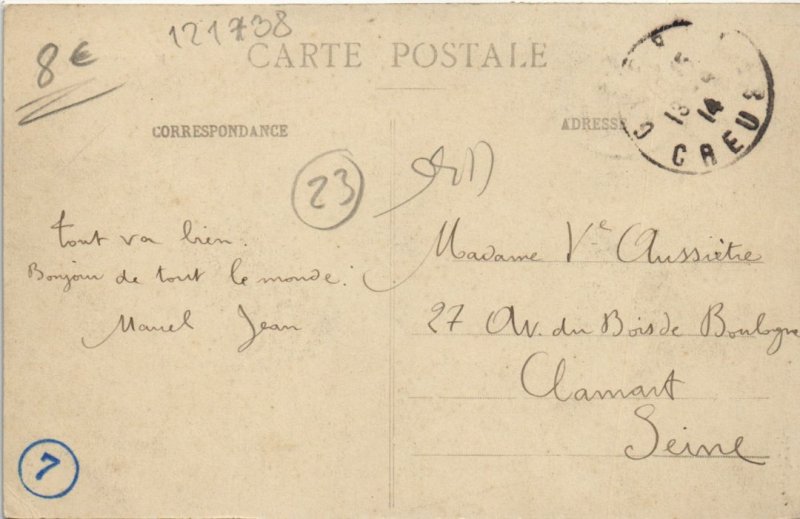 121738
8€
CARTE POSTALE
CORRESPONDANCE
ADRESSE
13
14
CREUSE
23
tout va bien.
Bonjour de tout le monde.
Marcel Jean
Madame Ve Aussiètre
27 Av. du Bois de Boulogne
Clamart
Seine
7